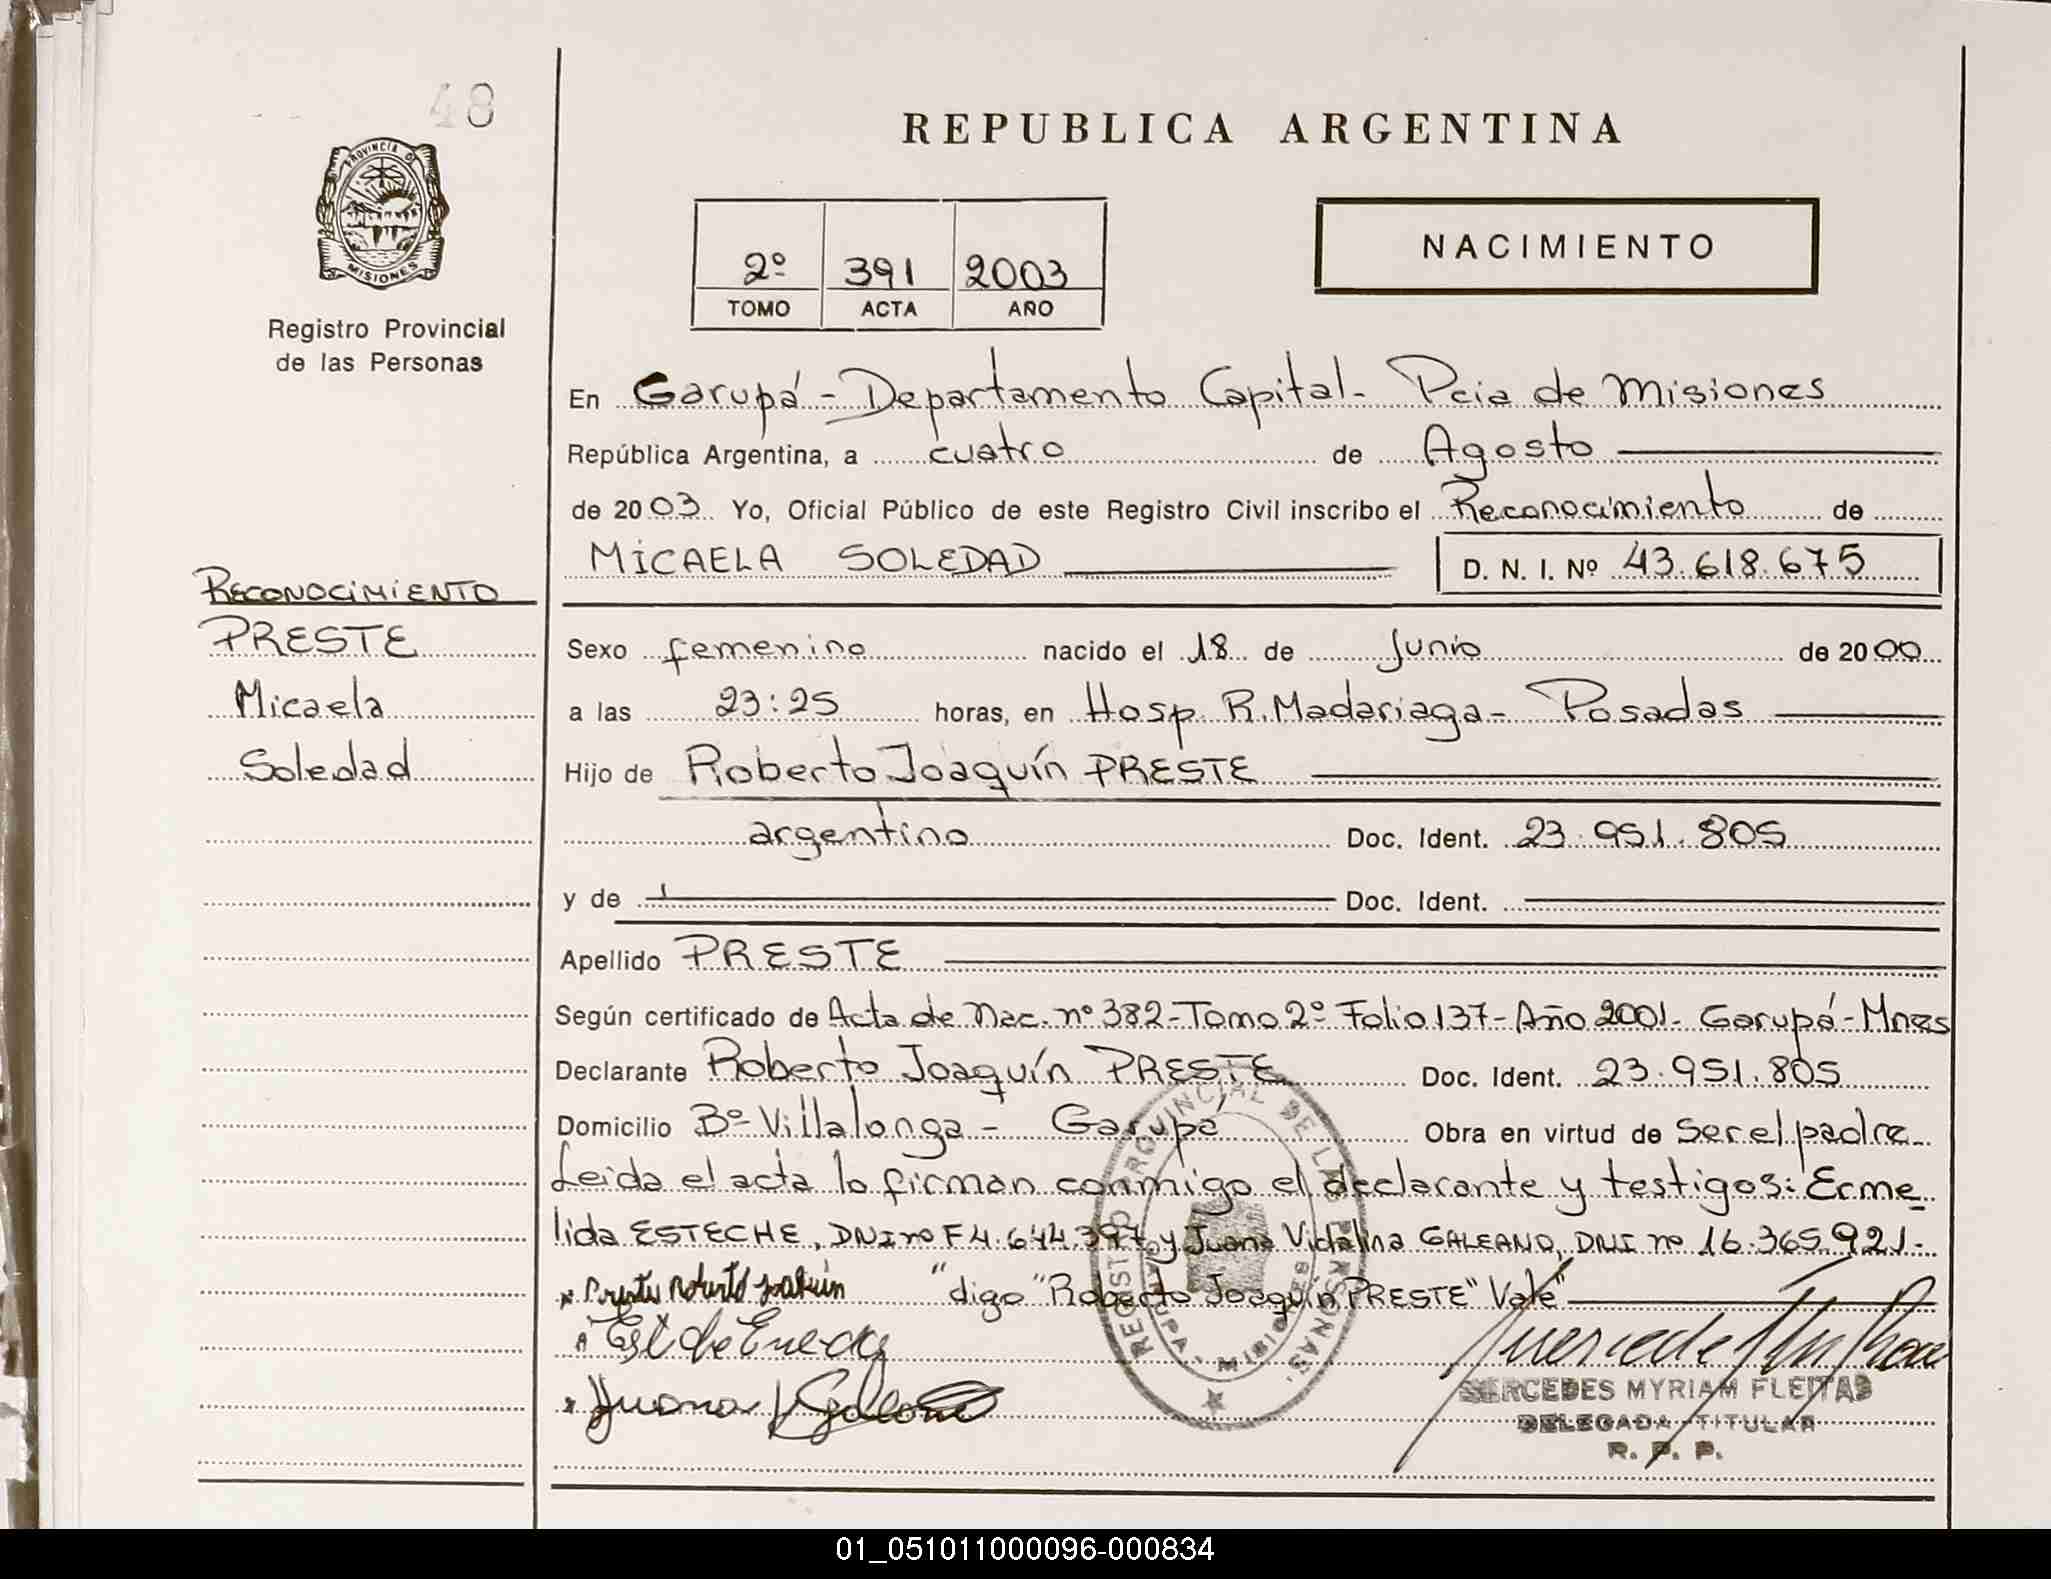 48
PROVINCIA DE
MISIONES
Registro Provincial
de las Personas
REPUBLICA ARGENTINA
2º 391 2003
TOMO ACTA AÑO
NACIMIENTO
En Garupá - Departamento Capital - Pcia de Misiones
República Argentina, a cuatro de Agosto
de 2003 Yo, Oficial Público de este Registro Civil inscribo el Reconocimiento de
MICAELA SOLEDAD D. N. I. Nº 43.618.675
RECONOCIMIENTO
PRESTE
Micaela
Soledad
Sexo femenino nacido el 18 de Junio de 2000
a las 23:25 horas, en Hosp R. Madariaga - Posadas
Hijo de Roberto Joaquín PRESTE
argentino Doc. Ident. 23.951.805
y de Doc. Ident.
Apellido PRESTE
Según certificado de Acta de Nac. nº 382 - Tomo 2º Folio 137 - Año 2001 - Garupá - Mnes
Declarante Roberto Joaquín PRESTE Doc. Ident. 23.951.805
Domicilio Bº Villalonga - Garupá Obra en virtud de ser el padre
Leida el acta lo firman conmigo el declarante y testigos: Erme
lida ESTECHE, DNI nº F4.644.397 y Juana Vidalina GALEANO, DNI nº 16.365.921.-
x Preste Roberto Joaquin "digo "Roberto Joaquín PRESTE" Vale"
Juana V Galeano
REGISTRO PROVINCIAL DE LAS PERSONAS
MISIONES
MERCEDES MYRIAM FLEITAS
DELEGADA TITULAR
R. P. P.
01_051011000096-000834